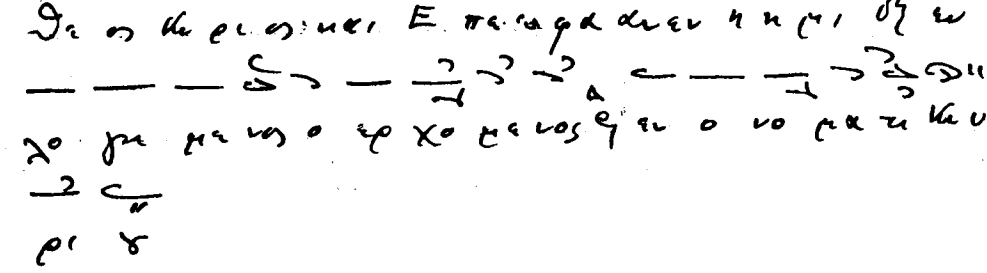 Θε ος Κυ ρι ος και Ε πε ε φα α νεν η η μι ευ
λο γη με νος ο ερ χο με νος εν ο νο μα τι Κυ
ρι ȣ